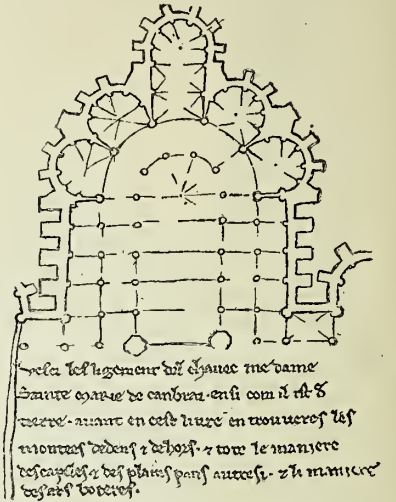 Vesci les ligement del chavec me dame
Sainte marie de canbrai · ensi com il ist &
tierre · avant en cest livre en trouveres les
montees dedens & dehors · & tote le maniere
des capeles & des plains pans autresi · & li maniere
des ars boteres ·